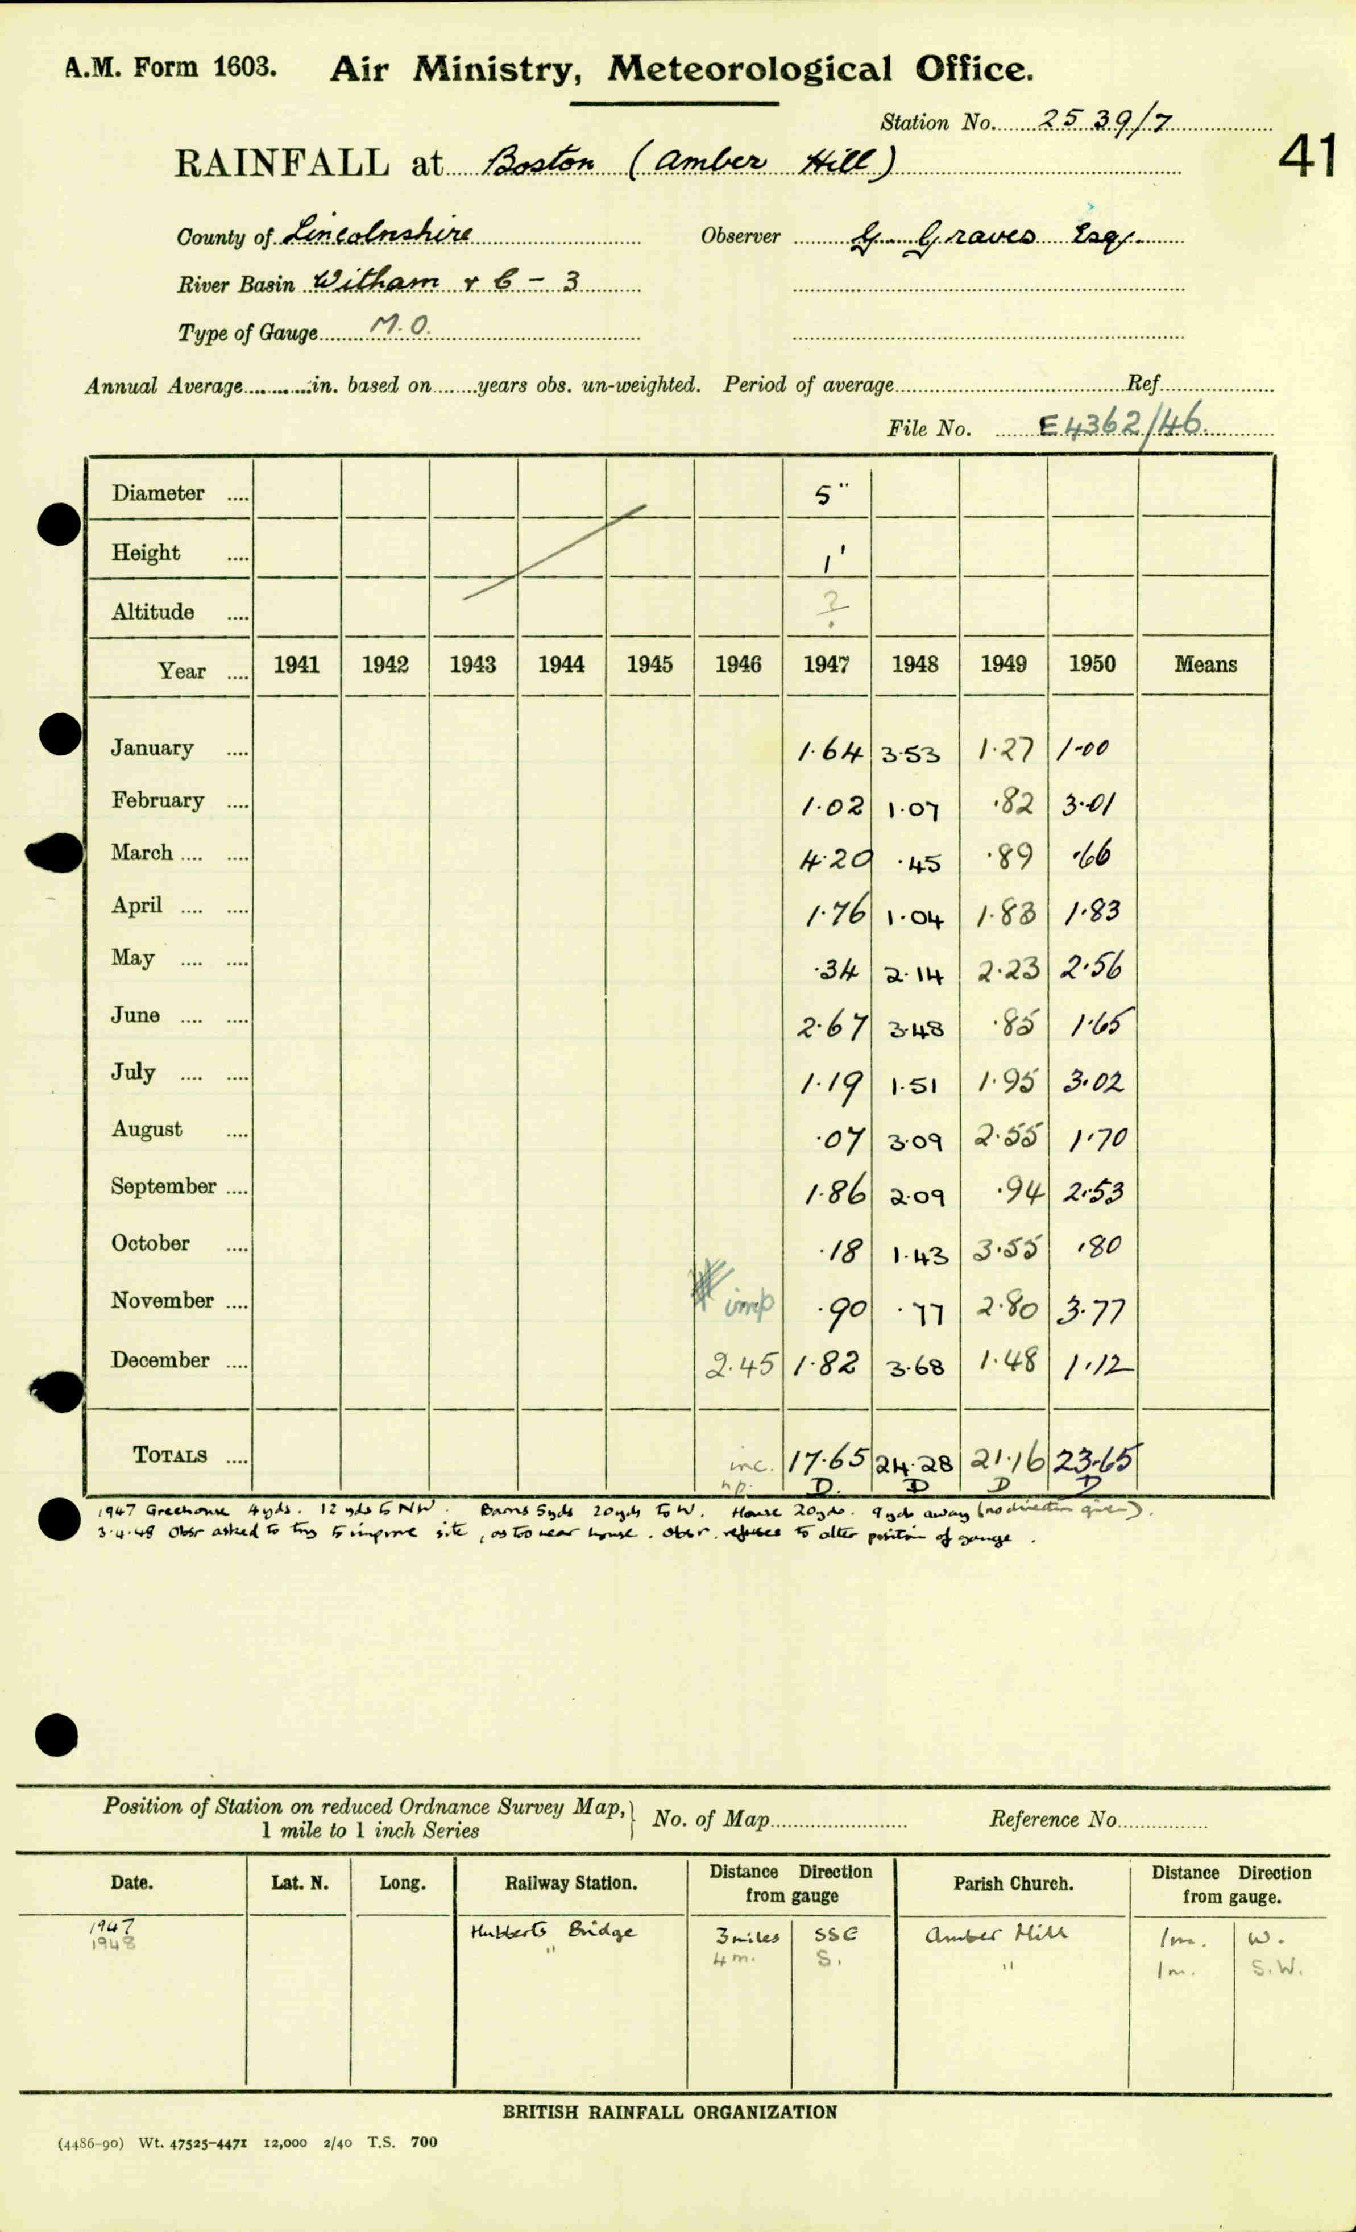 A.M. Form 1603. Air Ministry, Meteorological Office.
Station No. 2539/7
41
RAINFALL at Boston (Amber Hill)
County of Lincolnshire Observer G. Graves Esq.
River Basin Witham & C - 3
Type of Gauge M.O.
Annual Average in. based on years obs. un-weighted. Period of average Ref
File No. E4362/46.
Diameter .... 5"
Height .... 1'
Altitude .... ?
Year .... 1941 1942 1943 1944 1945 1946 1947 1948 1949 1950 Means
January .... 1.64 3.53 1.27 1.00
February .... 1.02 1.07 .82 3.01
March .... .... 4.20 .45 .89 .66
April .... .... 1.76 1.04 1.83 1.83
May .... .... .34 2.14 2.23 2.56
June .... .... 2.67 3.48 .85 1.65
July .... .... 1.19 1.51 1.95 3.02
August .... .07 3.09 2.55 1.70
September .... 1.86 2.09 .94 2.53
October .... .18 1.43 3.55 .80
November .... imp .90 .77 2.80 3.77
December .... 2.45 1.82 3.68 1.48 1.12
TOTALS .... inc. 17.65 24.28 21.16 23.65
np. D. D D D
1947 Greenhouse 4yds. 12 yds to NW. Barns 5yds 20yds to W. House 20yds. 9yds away (no direction given).
3.4.48 Obsr asked to try to improve site, as too near house. Obsr. refuses to alter position of gauge.
Position of Station on reduced Ordnance Survey Map, 1 mile to 1 inch Series No. of Map Reference No.
Date. Lat. N. Long. Railway Station. Distance Direction from gauge Parish Church. Distance Direction from gauge.
1947 Hubberts Bridge 3 miles SSE Amber Hill 1m. W.
1948 " 4 m. S. " 1m. S.W.
BRITISH RAINFALL ORGANIZATION
(4486-90) Wt. 47525-4471 12,000 2/40 T.S. 700